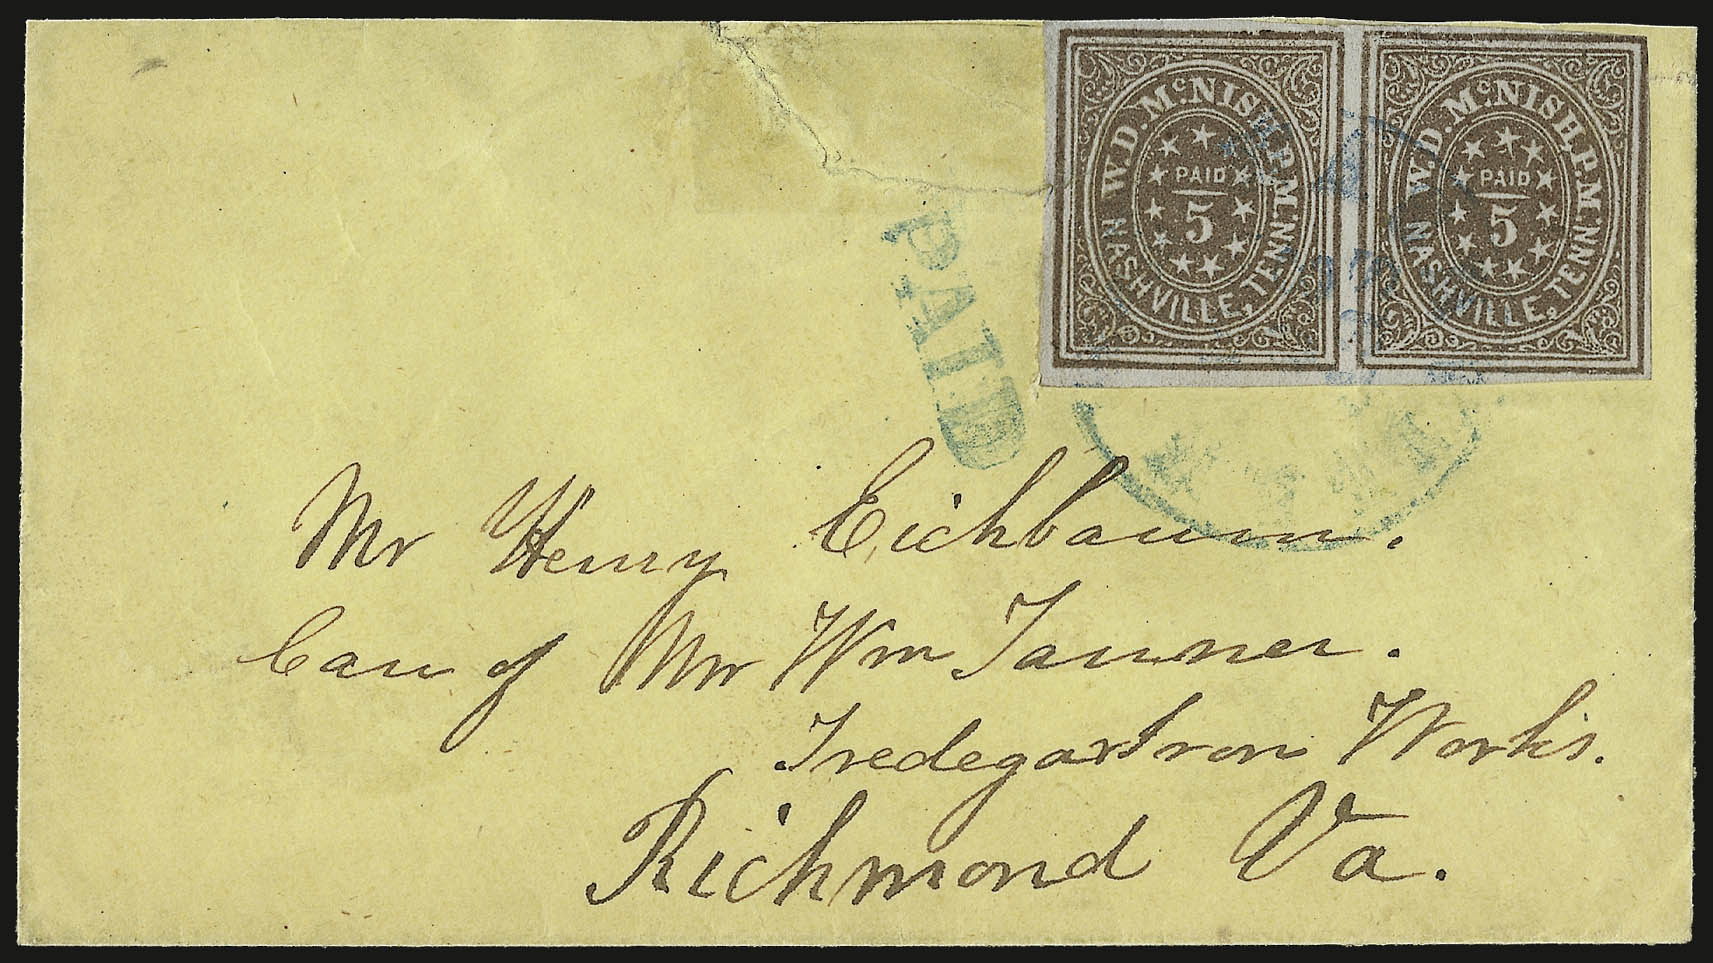 W.D. McNISH, P.M. NASHVILLE, TENN.
PAID
5
W.D. McNISH, P.M. NASHVILLE, TENN.
PAID
5
PAID
Mr Henry Eichbaum.
Care of Mr Wm Tanner.
Tredegar Iron Works.
Richmond Va.